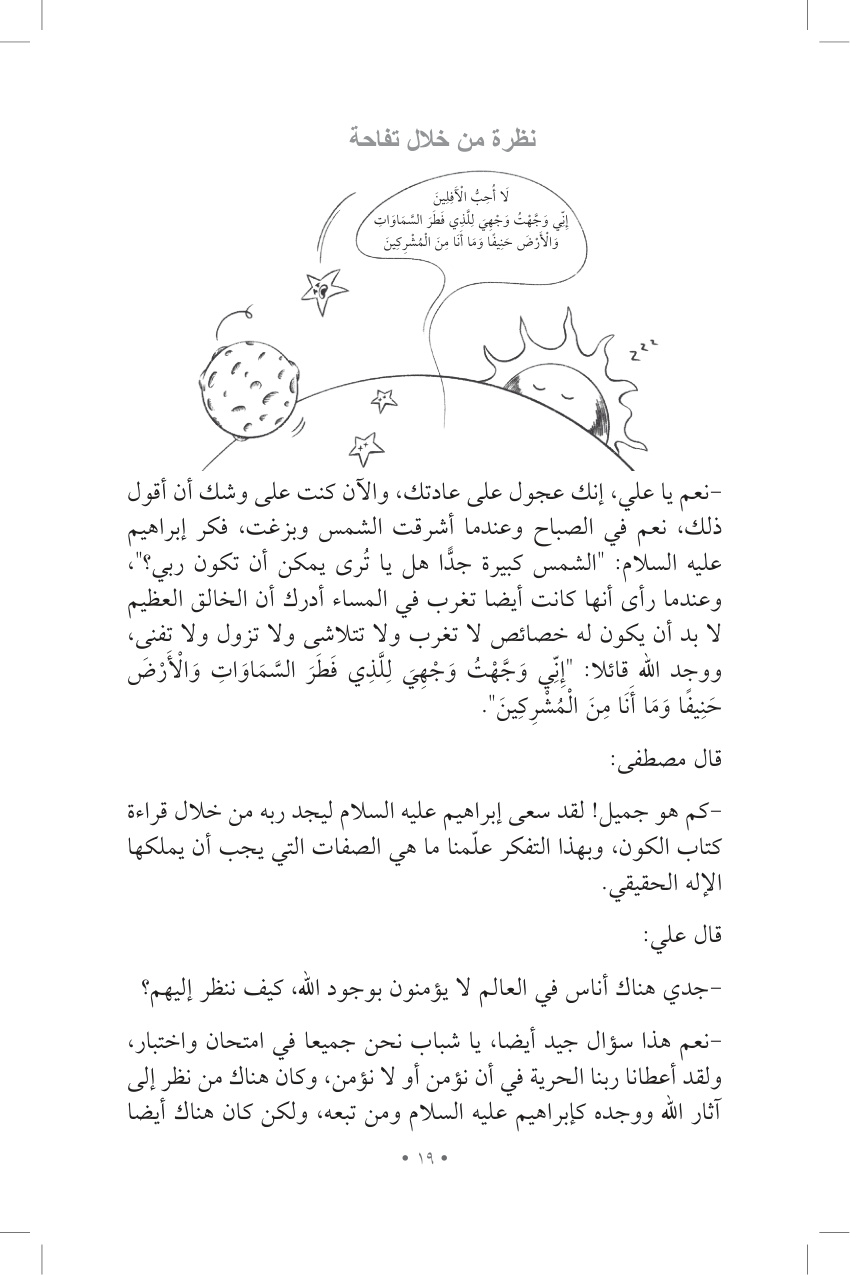 نظرة من خلال تفاحة
لَا أُحِبُّ الْأَفِلِينَ
إِنِّي وَجَّهْتُ وَجْهِيَ لِلَّذِي فَطَرَ السَّمَاوَاتِ
وَالْأَرْضَ حَنِيفًا وَمَا أَنَا مِنَ الْمُشْرِكِينَ
z z z
-نعم يا علي، إنك عجول على عادتك، والآن كنت على وشك أن أقول
ذلك، نعم في الصباح وعندما أشرقت الشمس وبزغت، فكر إبراهيم
عليه السلام: "الشمس كبيرة جدًّا هل يا تُرى يمكن أن تكون ربي؟"،
وعندما رأى أنها كانت أيضا تغرب في المساء أدرك أن الخالق العظيم
لا بد أن يكون له خصائص لا تغرب ولا تتلاشى ولا تزول ولا تفنى،
ووجد الله قائلا: "إِنِّي وَجَّهْتُ وَجْهِيَ لِلَّذِي فَطَرَ السَّمَاوَاتِ وَالْأَرْضَ
حَنِيفًا وَمَا أَنَا مِنَ الْمُشْرِكِينَ".
قال مصطفى:
-كم هو جميل! لقد سعى إبراهيم عليه السلام ليجد ربه من خلال قراءة
كتاب الكون، وبهذا التفكر علّمنا ما هي الصفات التي يجب أن يملكها
الإله الحقيقي.
قال علي:
-جدي هناك أناس في العالم لا يؤمنون بوجود الله، كيف ننظر إليهم؟
-نعم هذا سؤال جيد أيضا، يا شباب نحن جميعا في امتحان واختبار،
ولقد أعطانا ربنا الحرية في أن نؤمن أو لا نؤمن، وكان هناك من نظر إلى
آثار الله ووجده كإبراهيم عليه السلام ومن تبعه، ولكن كان هناك أيضا
• ١٩ •